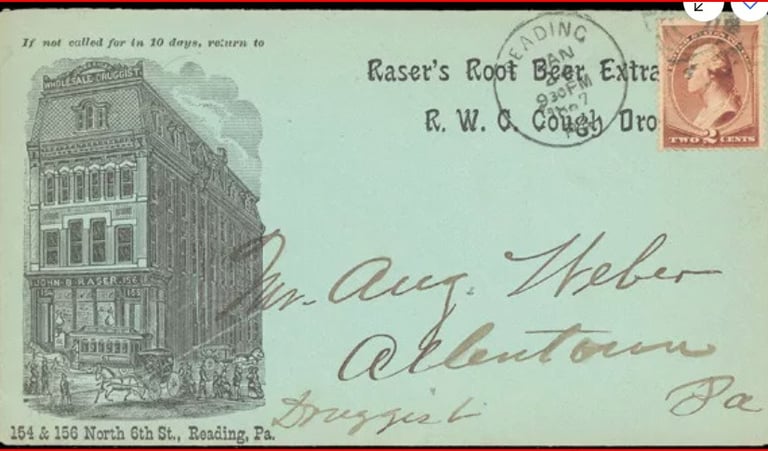 If not called for in 10 days, return to
WHOLESALE DRUGGIST.
JOHN B. RASER. 156
154 & 156 North 6th St., Reading, Pa.
Raser's Root Beer Extra
R. W. C. Cough Dro
READING
JAN
930 PM
TWO 2 CENTS
Mr. Aug. Weber
Allentown
Druggist Pa